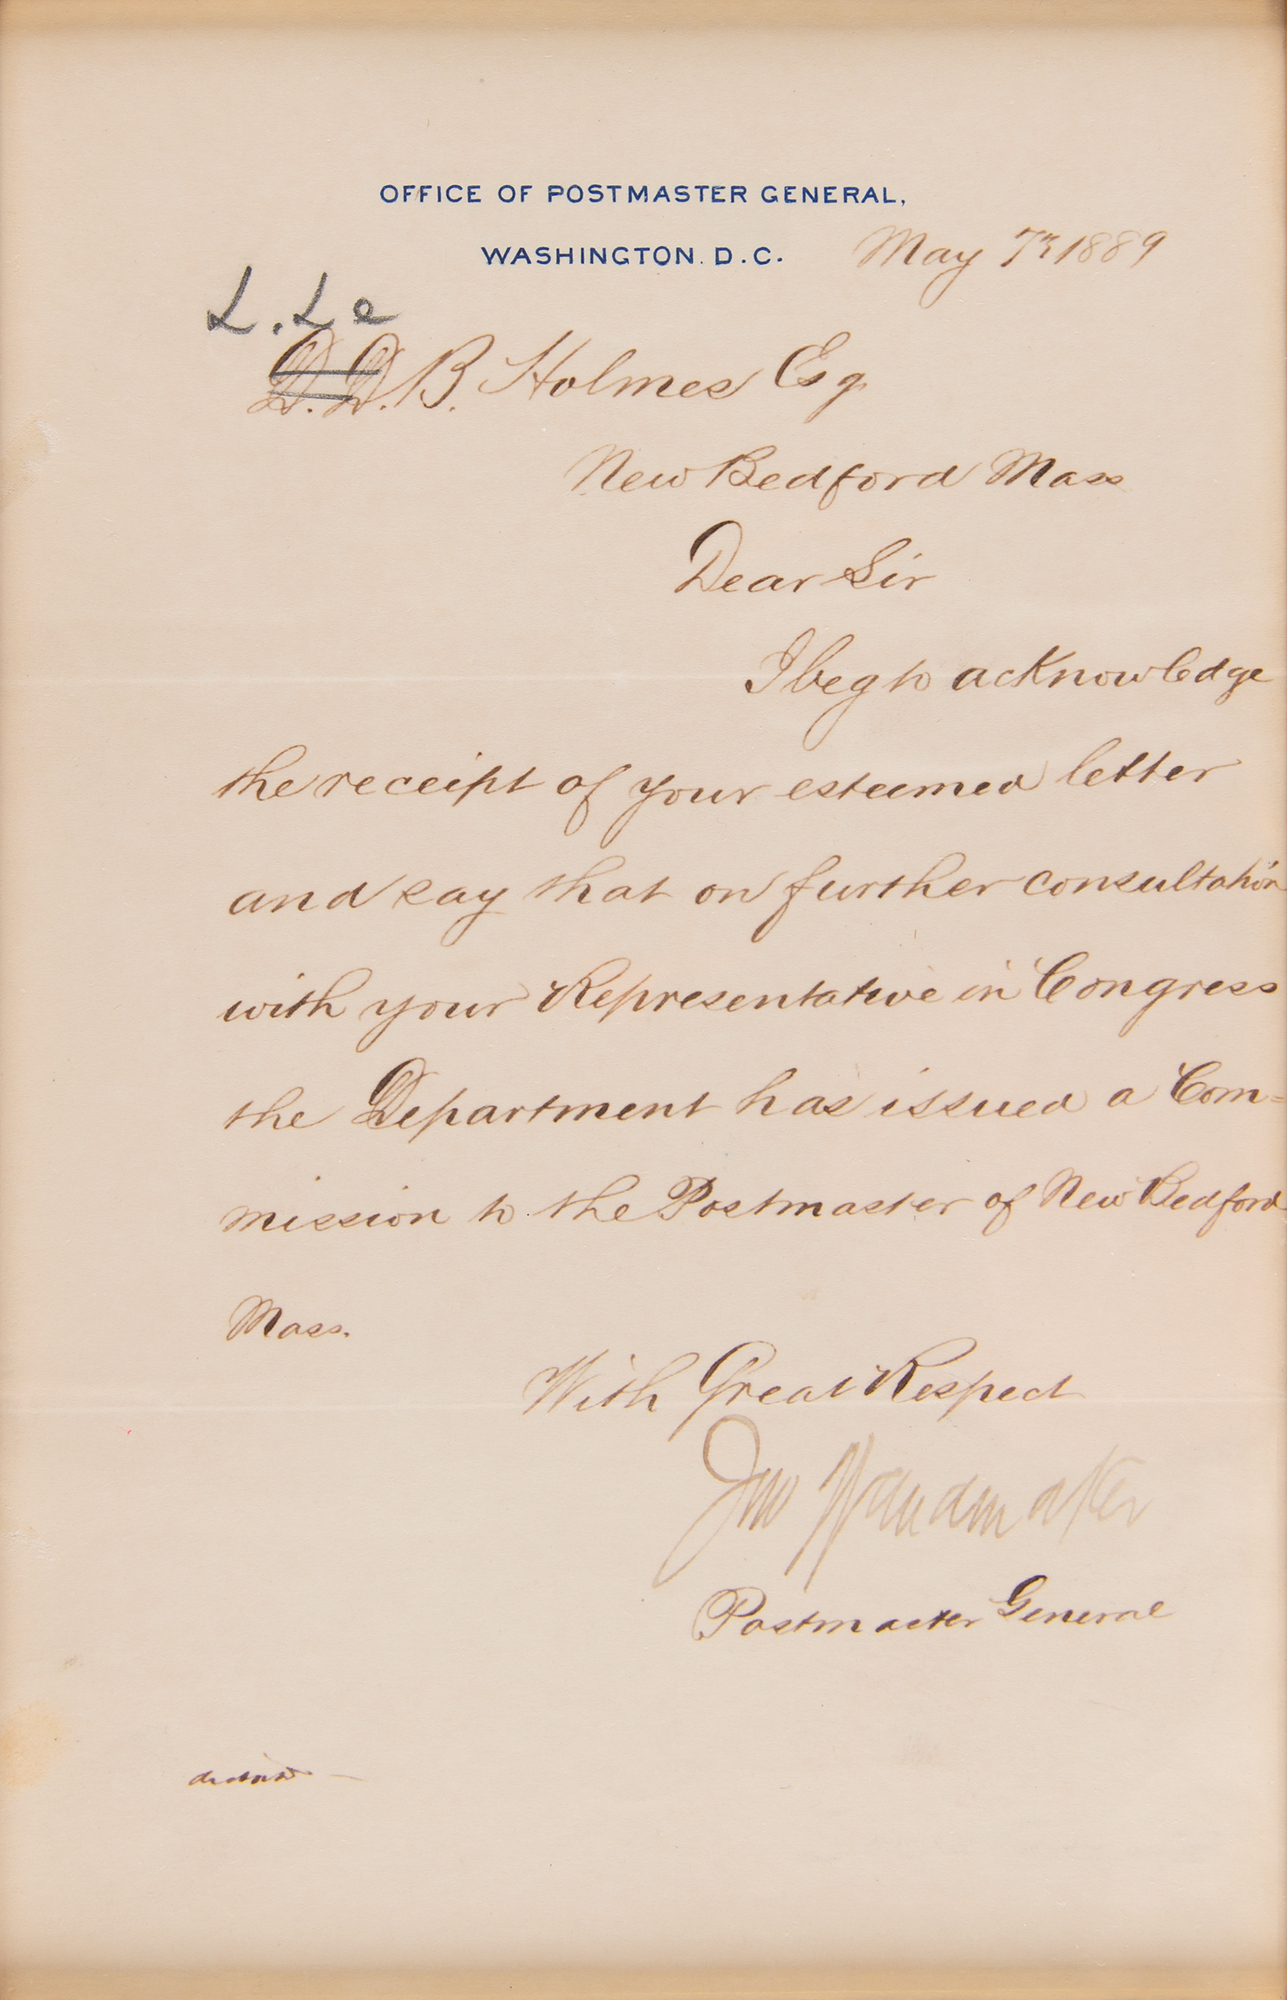 OFFICE OF POSTMASTER GENERAL,
WASHINGTON. D.C.
May 7th 1889
L. Le
D. D. B. Holmes Esq.
New Bedford Mass
Dear Sir
I beg to acknowledge
the receipt of your esteemed letter
and say that on further consultation
with your Representative in Congress
the Department has issued a Com=
mission to the Postmaster of New Bedford
Mass.
With Great Respect
Jno Wanamaker
Postmaster General